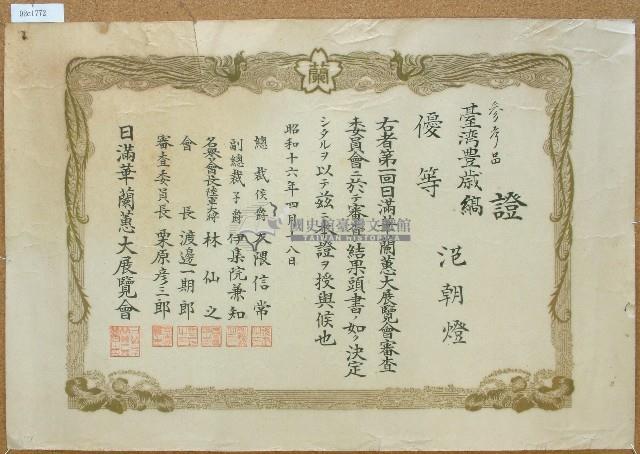 98c1772
蘭
證
参考品
臺湾豊歳縞
范朝燈
優等
右者第一回日満華蘭蕙大展覽會審査
委員會ニ於テ審査結果頭書ノ如ク決定
シタルヲ以テ茲ニ本證ヲ授與候也
昭和十六年四月十八日
總裁侯爵大隈信常
副總裁子爵伊集院兼知
名譽會長陸軍大將林仙之
會長渡邊一期郎
審査委員長栗原彦三郎
日満華蘭蕙大展覽會
國史館臺灣文獻館
TAIWAN HISTORICA